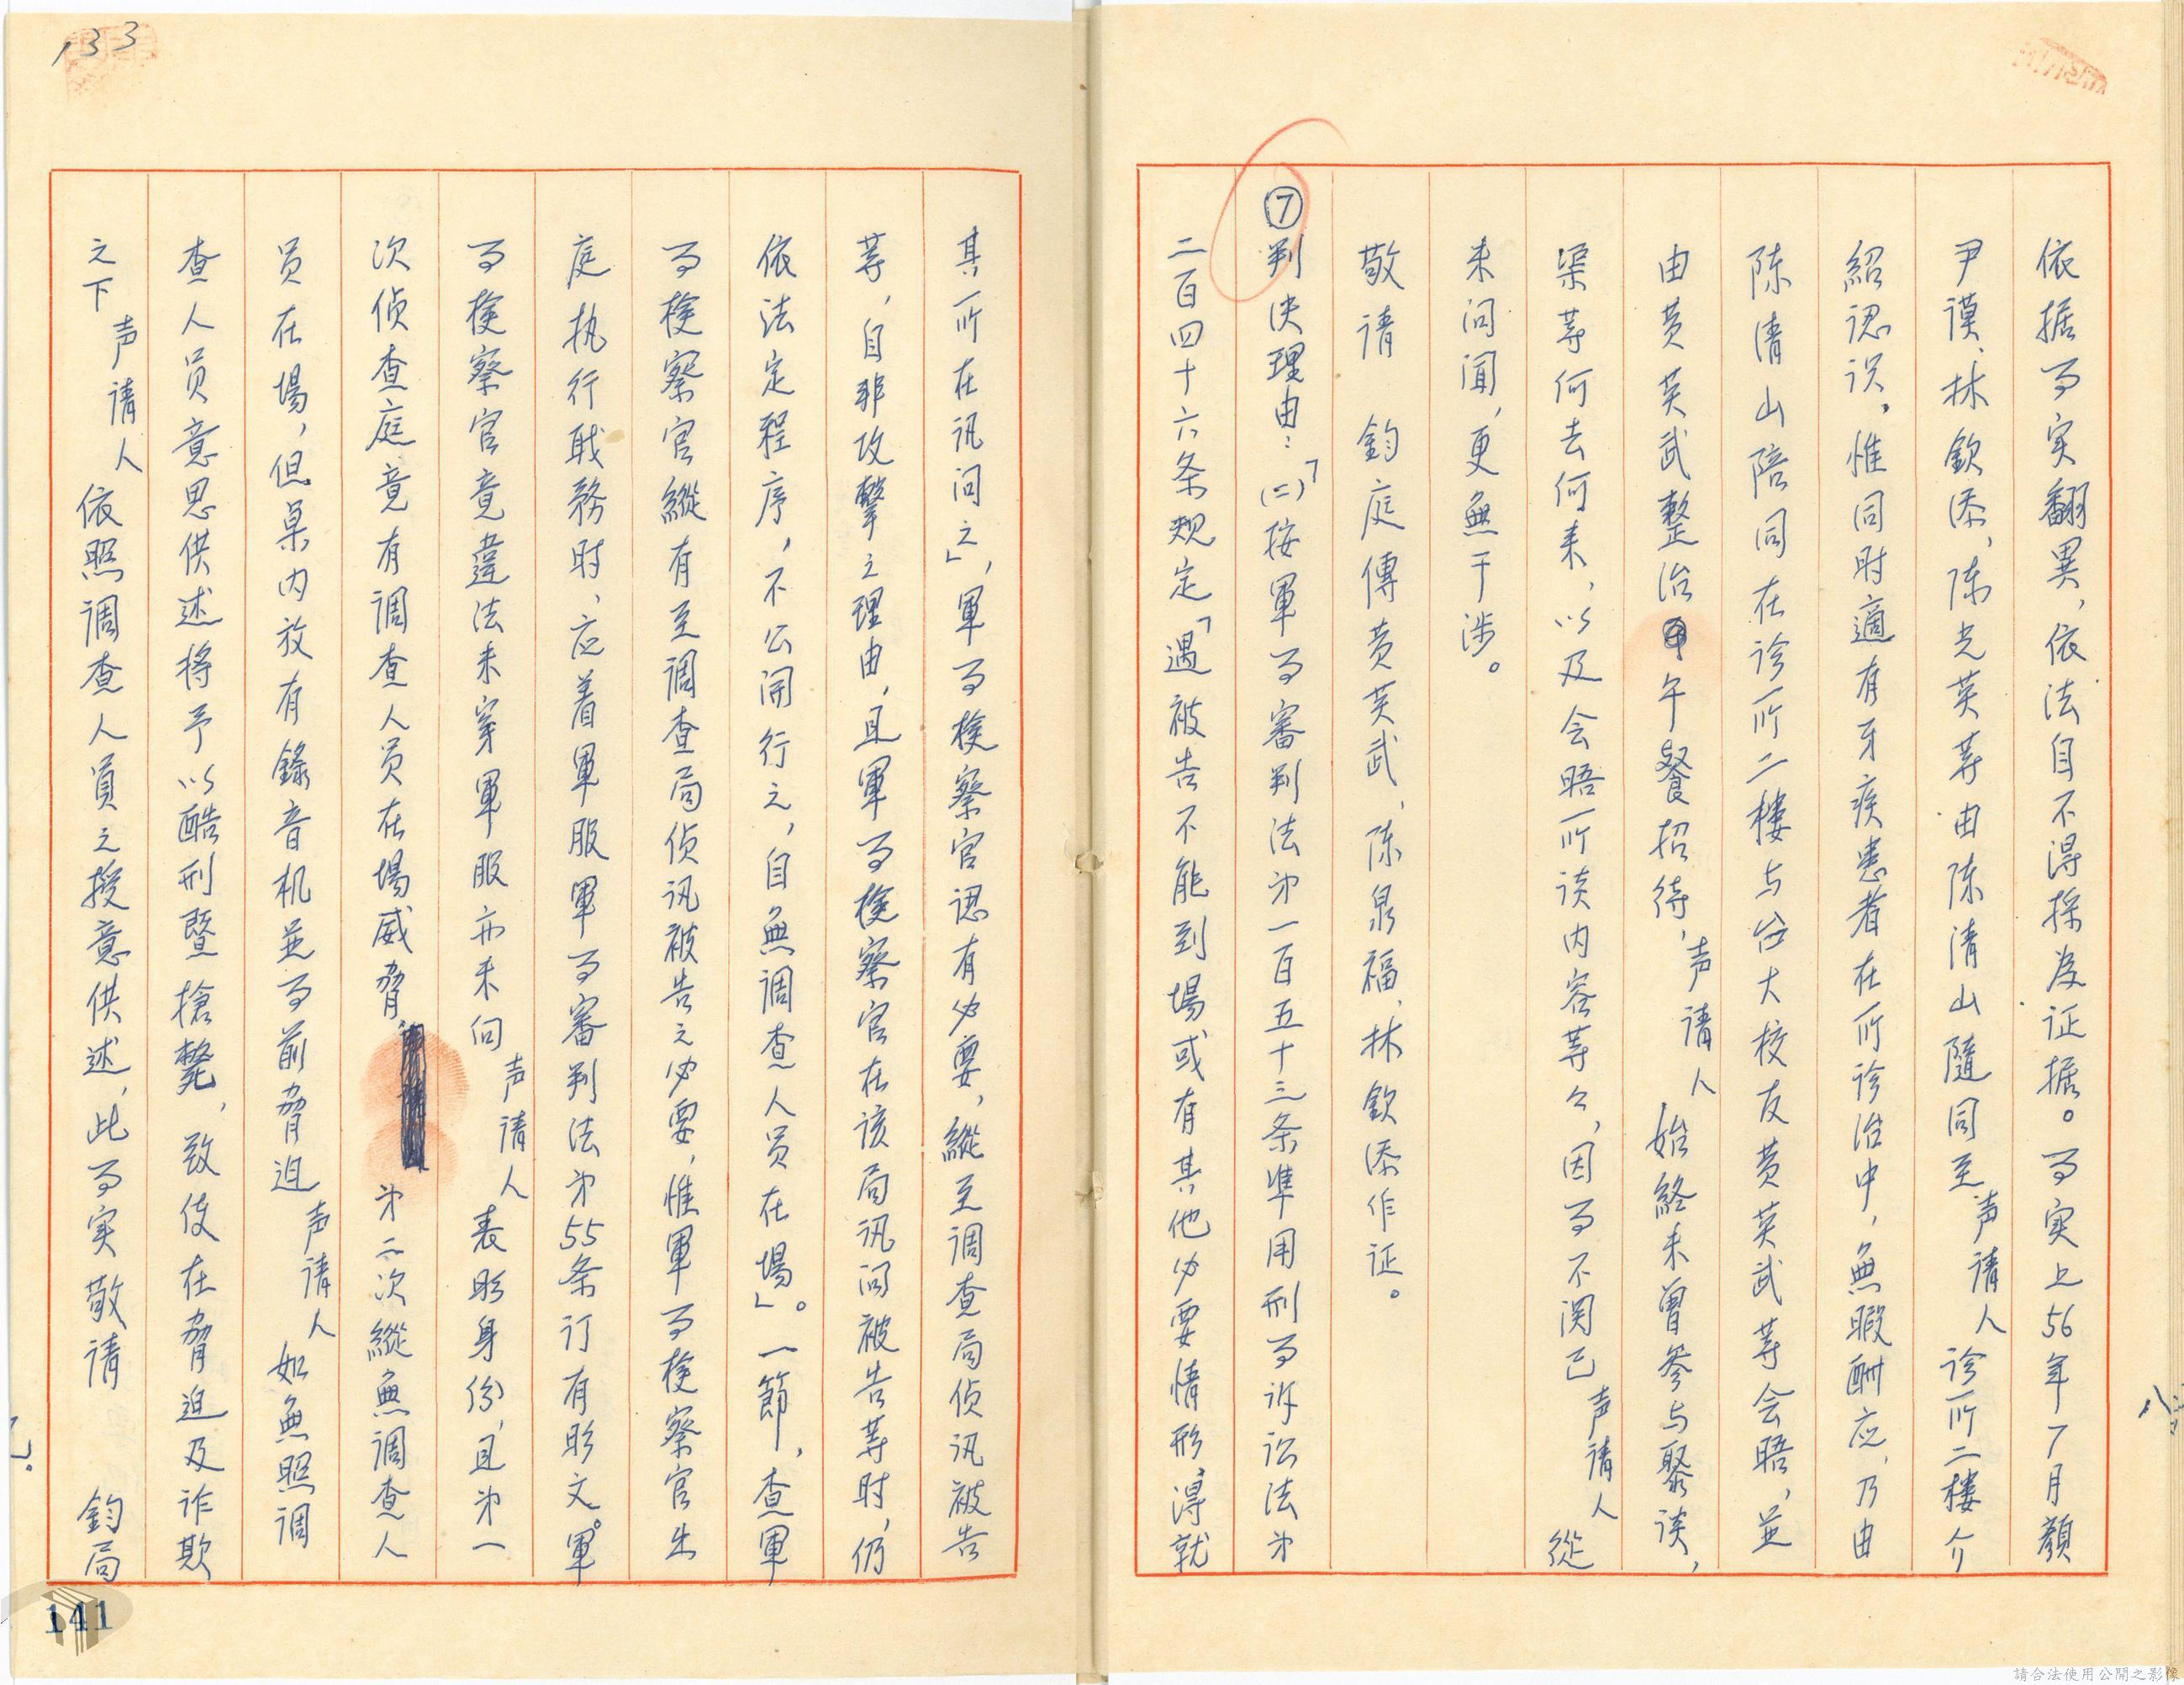 依据事实翻異，依法自不得採為证据。事实上56年7月顏
尹謨、林欽添、陈光英等由陈清山隨同至声请人诊所二樓介
紹認识，惟同时適有牙疾患者在所诊治中，無暇酬应，乃由
陈清山陪同在诊所二樓与台大校友黄英武等会晤，並
由黄英武整治午餐招待，声请人始終未曾參与聚谈，
渠等何去何来，以及会晤所谈内容等々，因事不関己声请人從
未问聞，更無干涉。
敬请　鈞庭傳黄英武、陈泉福、林欽添作证。
⑦判决理由：「(二)按軍事審判法第一百五十三条準用刑事诉讼法第
二百四十六条规定「遇被告不能到場或有其他必要情形，得就
其所在讯问之」，軍事検察官認有必要，縱至调查局侦讯被告
等，自非攻擊之理由，且軍事検察官在该局讯问被告等时，仍
依法定程序，不公開行之，自無调查人员在場」。一節，查軍
事検察官縱有至调查局侦讯被告之必要，惟軍事検察官出
庭执行职務时，应着軍服軍事審判法第55条订有明文。軍
事検察官竟違法未穿軍服亦未向声请人表明身份，且第一
次侦查庭竟有调查人员在場威脅，第二次縱無调查人
员在場，但桌内放有錄音机並事前脅迫声请人如無照调
查人员意思供述将予以酷刑暨槍斃，致使在脅迫及诈欺
之下声请人依照调查人員之授意供述，此事实敬请　鈞局
133
141
請合法使用公開之影像